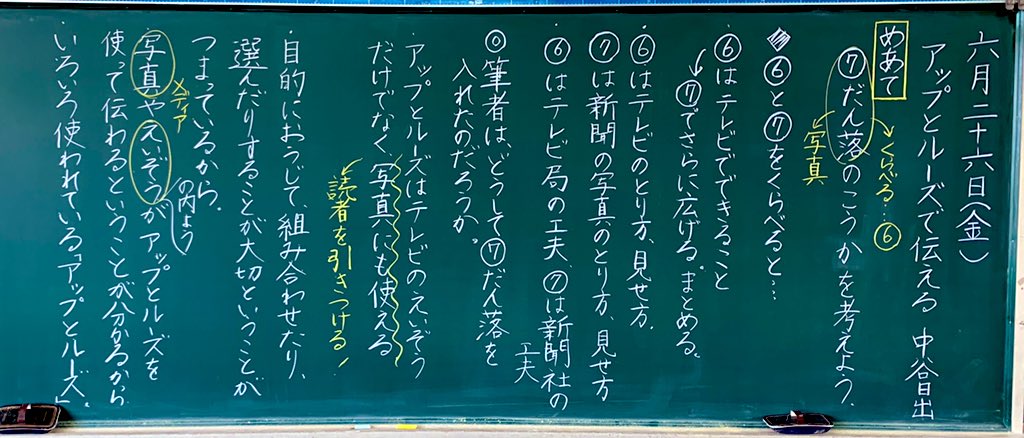 六月二十六日(金)
アップとルーズで伝える 中谷日出
めあて
⑦だん落のこうかを考えよう。
くらべる…⑥
写真
⑥と⑦をくらべると…
⑥はテレビでできること
⑦でさらに広げる。まとめる。
・⑥はテレビのとり方、見せ方、
⑦は新聞の写真のとり方、見せ方
⑥はテレビ局の工夫 ⑦は新聞社の
工夫
◎筆者は、どうして⑦だん落を
入れたのだろうか。
・アップとルーズはテレビのえいぞう
だけでなく写真にも使える
読者を引きつける!
・目的におうじて、組み合わせたり、
選んだりすることが大切ということが
つまっているから。
の内よう
写真やえいぞうがアップとルーズを
メディア
使って伝わるということが分かるから
いろいろ使われている「アップとルーズ」。